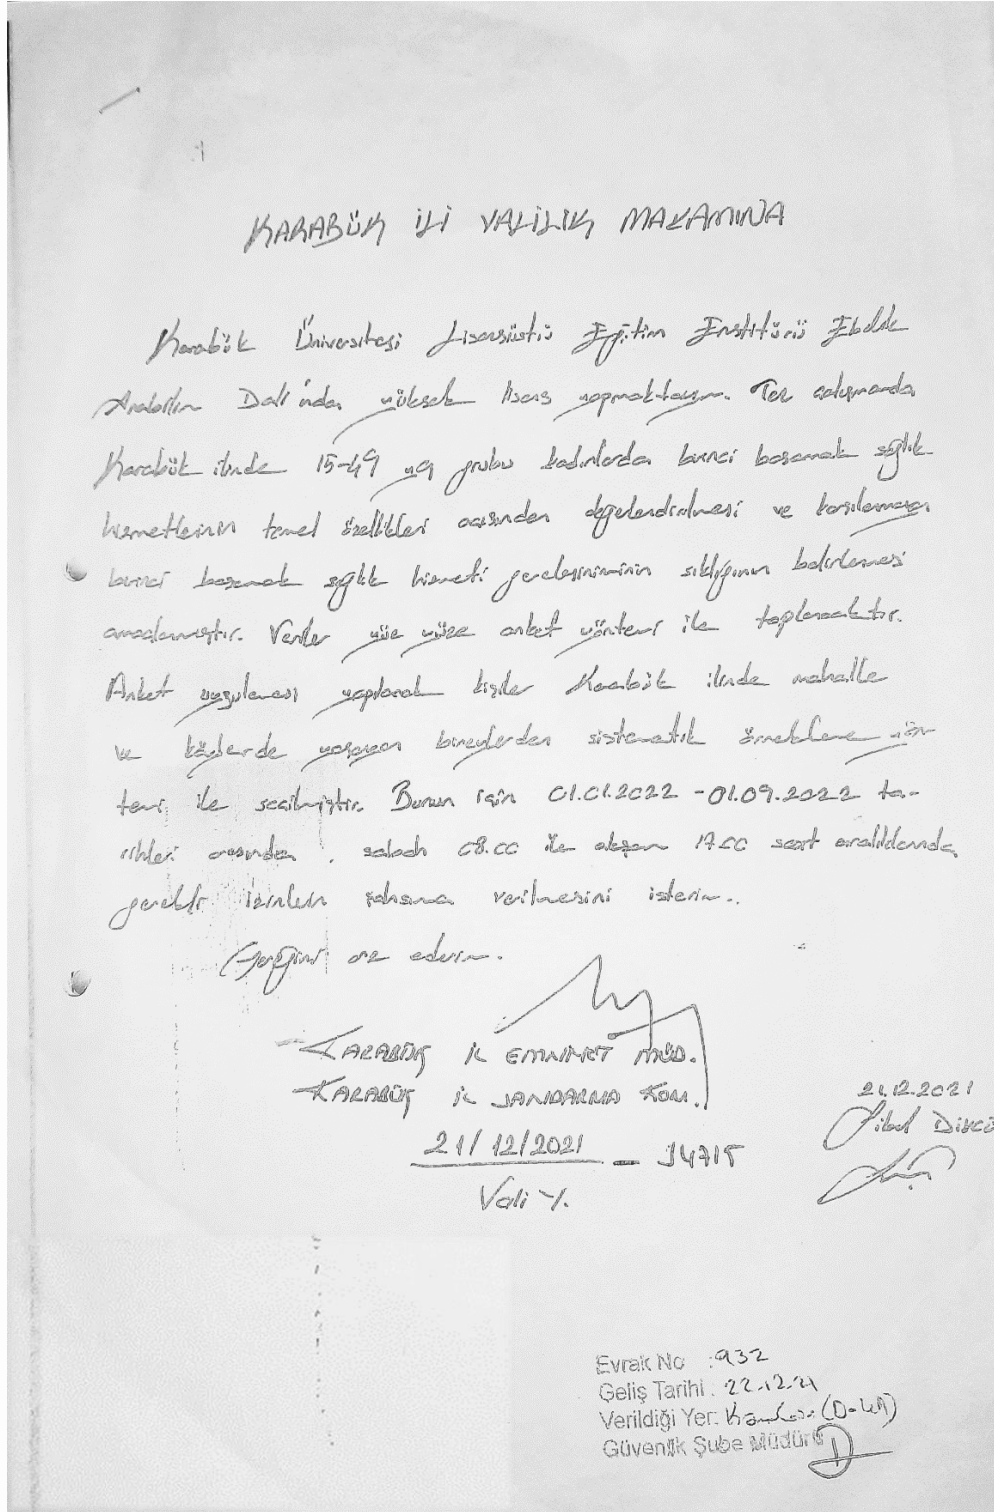 KARABÜK İLİ VALİLİK MAKAMINA
Karabük Üniversitesi Lisansüstü Eğitim Enstitüsü Ebelik
Anabilim Dalı'nda yüksek lisans yapmaktayım. Tez çalışmamda
Karabük ilinde 15-49 yaş grubu kadınlarda birinci basamak sağlık
hizmetlerinin temel özellikleri açısından değerlendirilmesi ve karşılanmayan
birinci basamak sağlık hizmeti gereksiniminin sıklığının belirlenmesi
amaçlanmıştır. Veriler yüz yüze anket yöntemi ile toplanacaktır.
Anket uygulaması yapılacak kişiler Karabük ilinde mahalle
ve köylerde yaşayan bireylerden sistematik örnekleme yön-
temi ile seçilmiştir. Bunun için 01.01.2022 - 01.09.2022 ta-
rihleri arasında, sabah 08.00 ile akşam 17.00 saat aralıklarında
gerekli izinlerin şahsıma verilmesini isterim..
Gereğini arz ederim.
KARABÜK İL EMNİYET MÜD.
KARABÜK İL JANDARMA KOM.
21.12.2021
Sibel
21/12/2021 - 14715
Vali Y.
Evrak No : 932
Geliş Tarihi : 22.12.21
Verildiği Yer:
Güvenlik Şube Müdürü